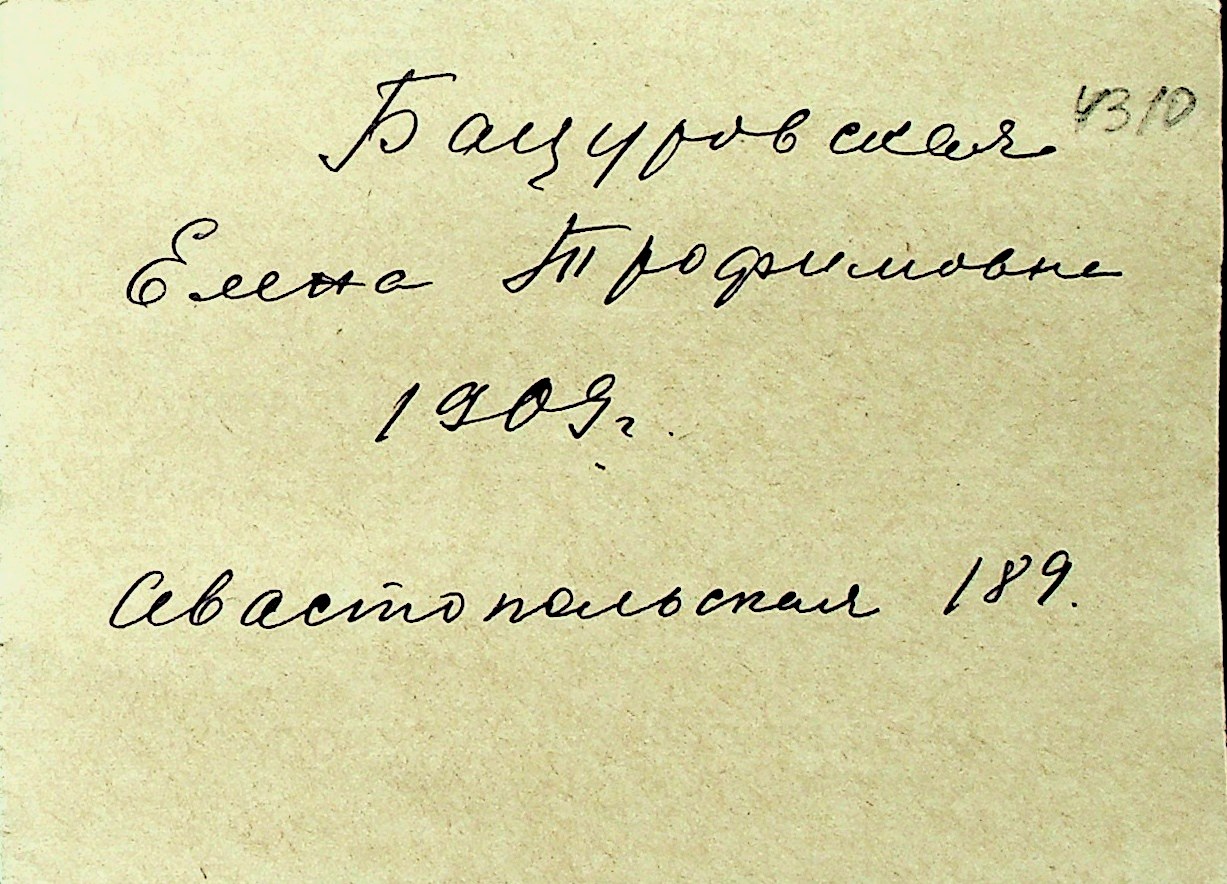 Бацуровская 4310
Елена Трофимовна
1909г.
Севастопольская 189.